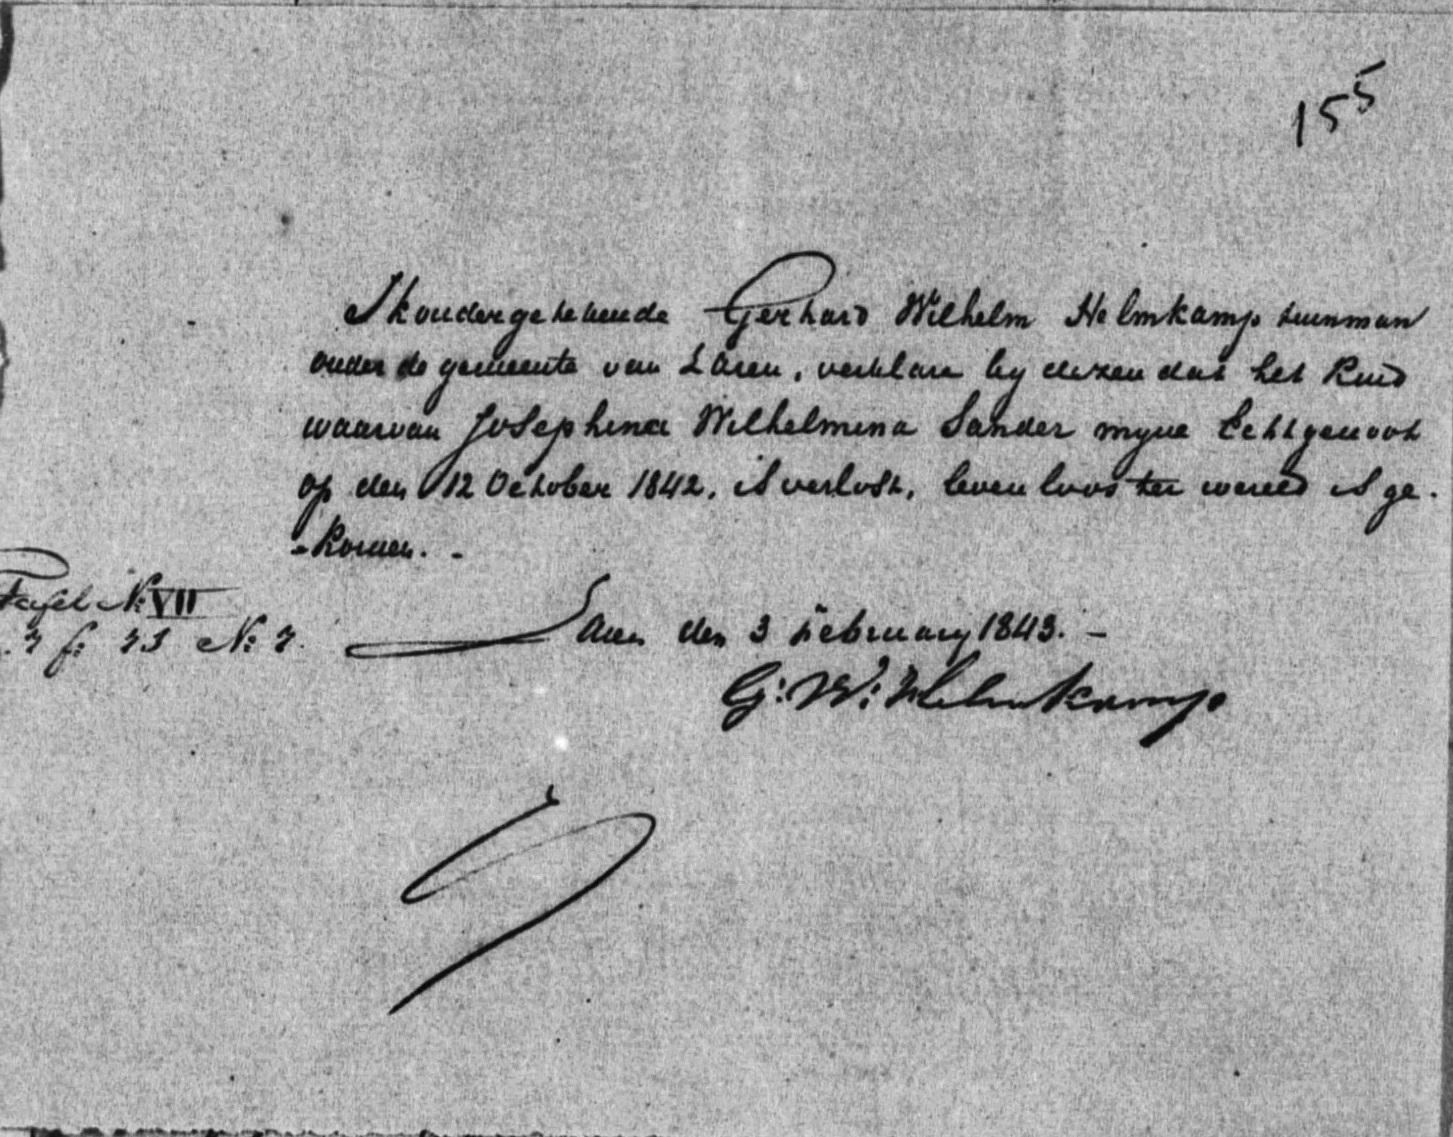 155
Ik ondergetekende Gerhard Wilhelm Helmkamp tuinman
onder de gemeente van Laren, verklare by dezen dat het Kind
waarvan Josephina Wilhelmina Sander myne Echtgenoot
op den 12 October 1842, is verlost, levenloos ter wereld is ge-
-komen. -
Tafel No VII
Laren den 3 February 1843. -
G: W: Helmkamp